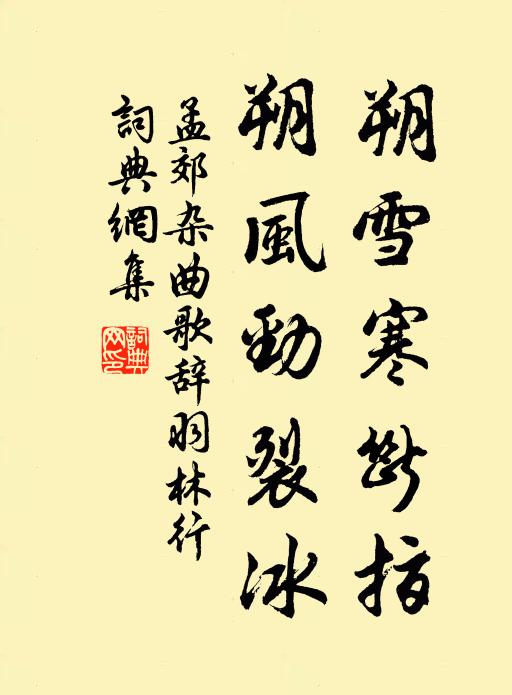 朔雪寒斷指
朔風勁裂冰
孟郊杂曲歌辞羽林行
詞典網集
詞典网印